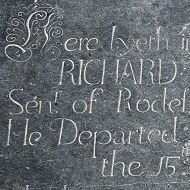 Here lyeth i
RICHARD
Senr. of Rodef
He Departed
the 15